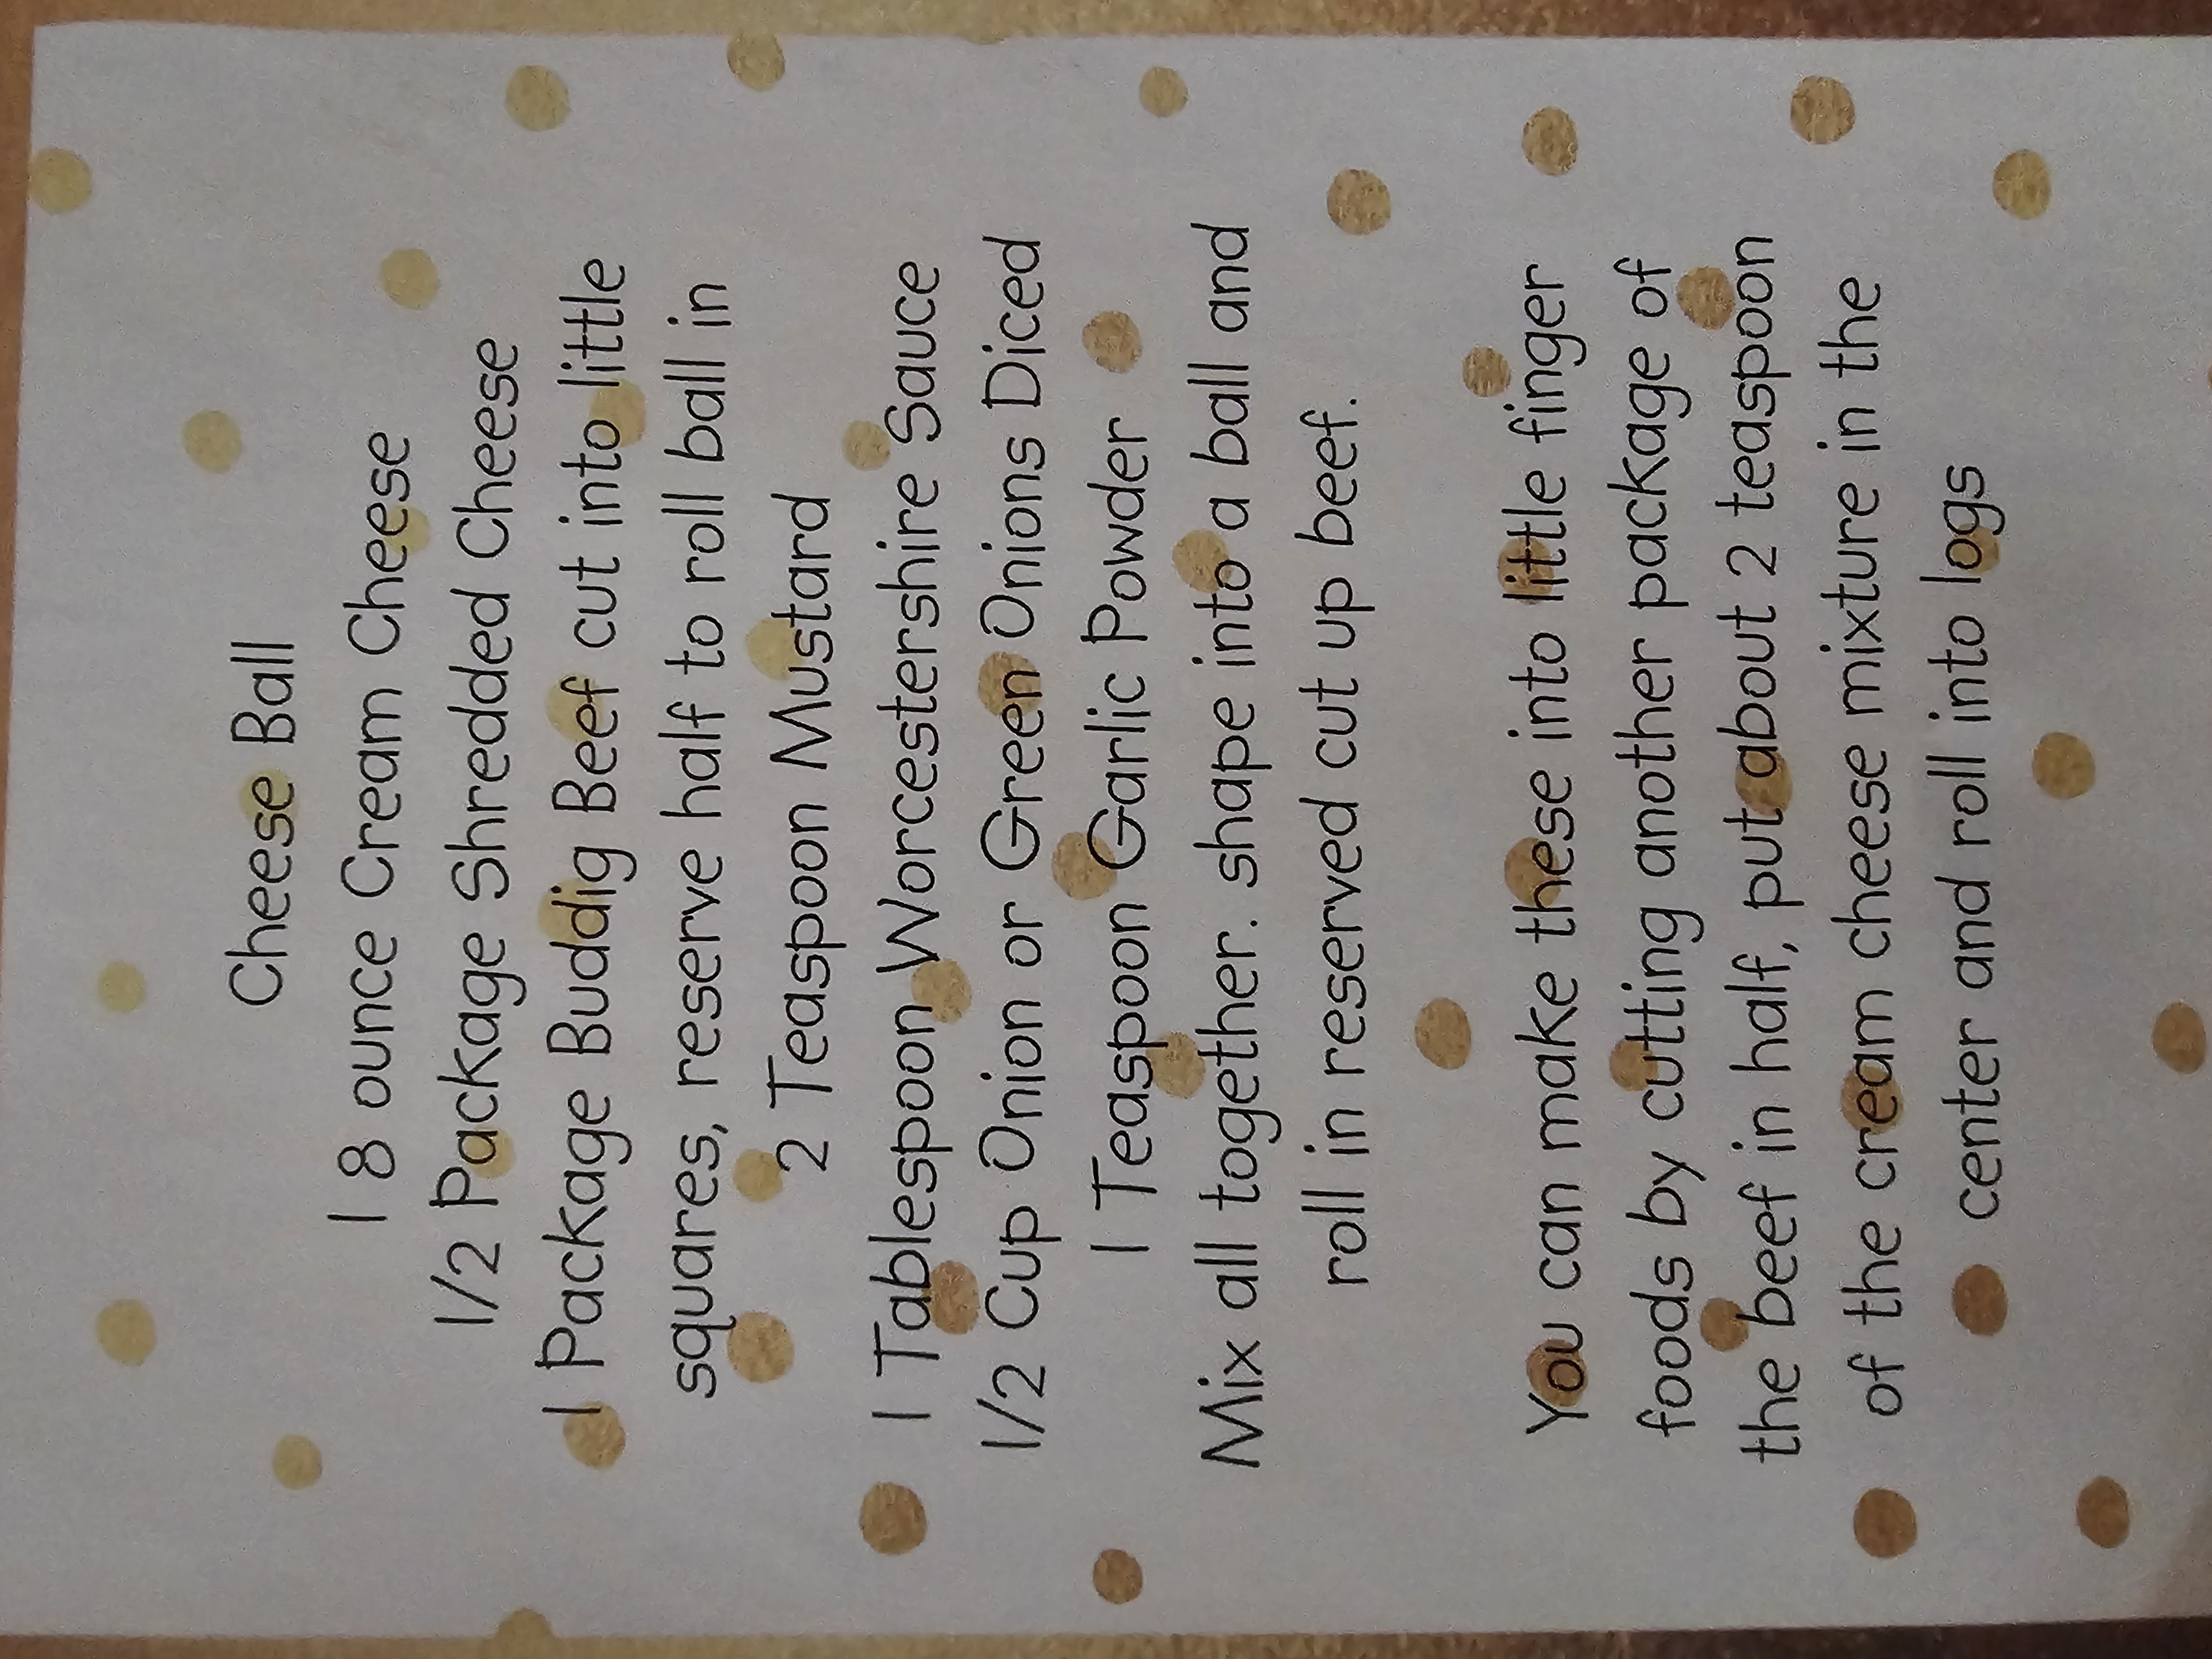 Cheese Ball
1 8 ounce Cream Cheese
1/2 Package Shredded Cheese
1 Package Buddig Beef cut into little
squares, reserve half to roll ball in
2 Teaspoon Mustard
1 Tablespoon Worcestershire Sauce
1/2 Cup Onion or Green Onions Diced
1 Teaspoon Garlic Powder
Mix all together. shape into a ball and
roll in reserved cut up beef.
You can make these into little finger
foods by cutting another package of
the beef in half, put about 2 teaspoon
of the cream cheese mixture in the
center and roll into logs